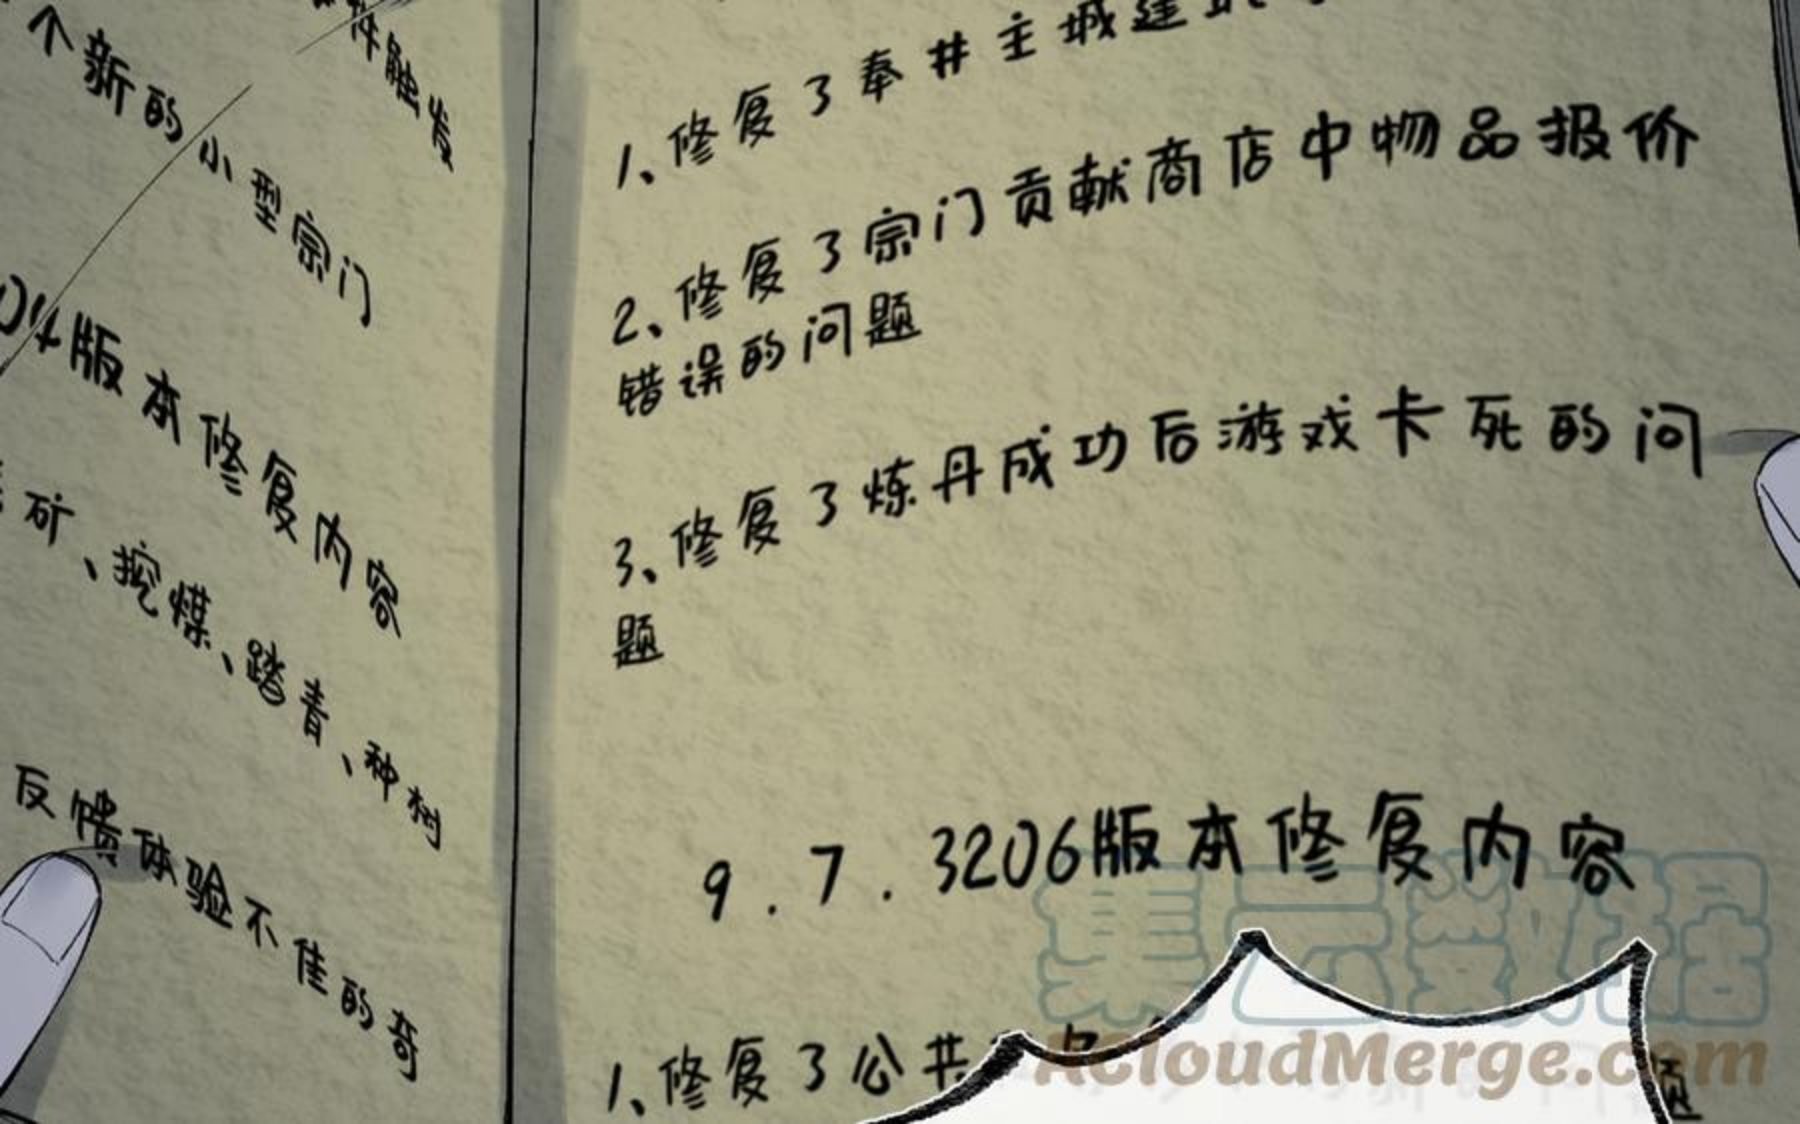 件触发
个新的小型宗门
04版本修复内容
矿、挖煤、踏青、种树
反馈体验不佳的奇
1、修复了奉井主城建
2、修复了宗门贡献商店中物品报价
错误的问题
3、修复了炼丹成功后游戏卡死的问
题
9.7.3206版本修复内容
1、修复了公共
集云数据
ACloudMerge.com